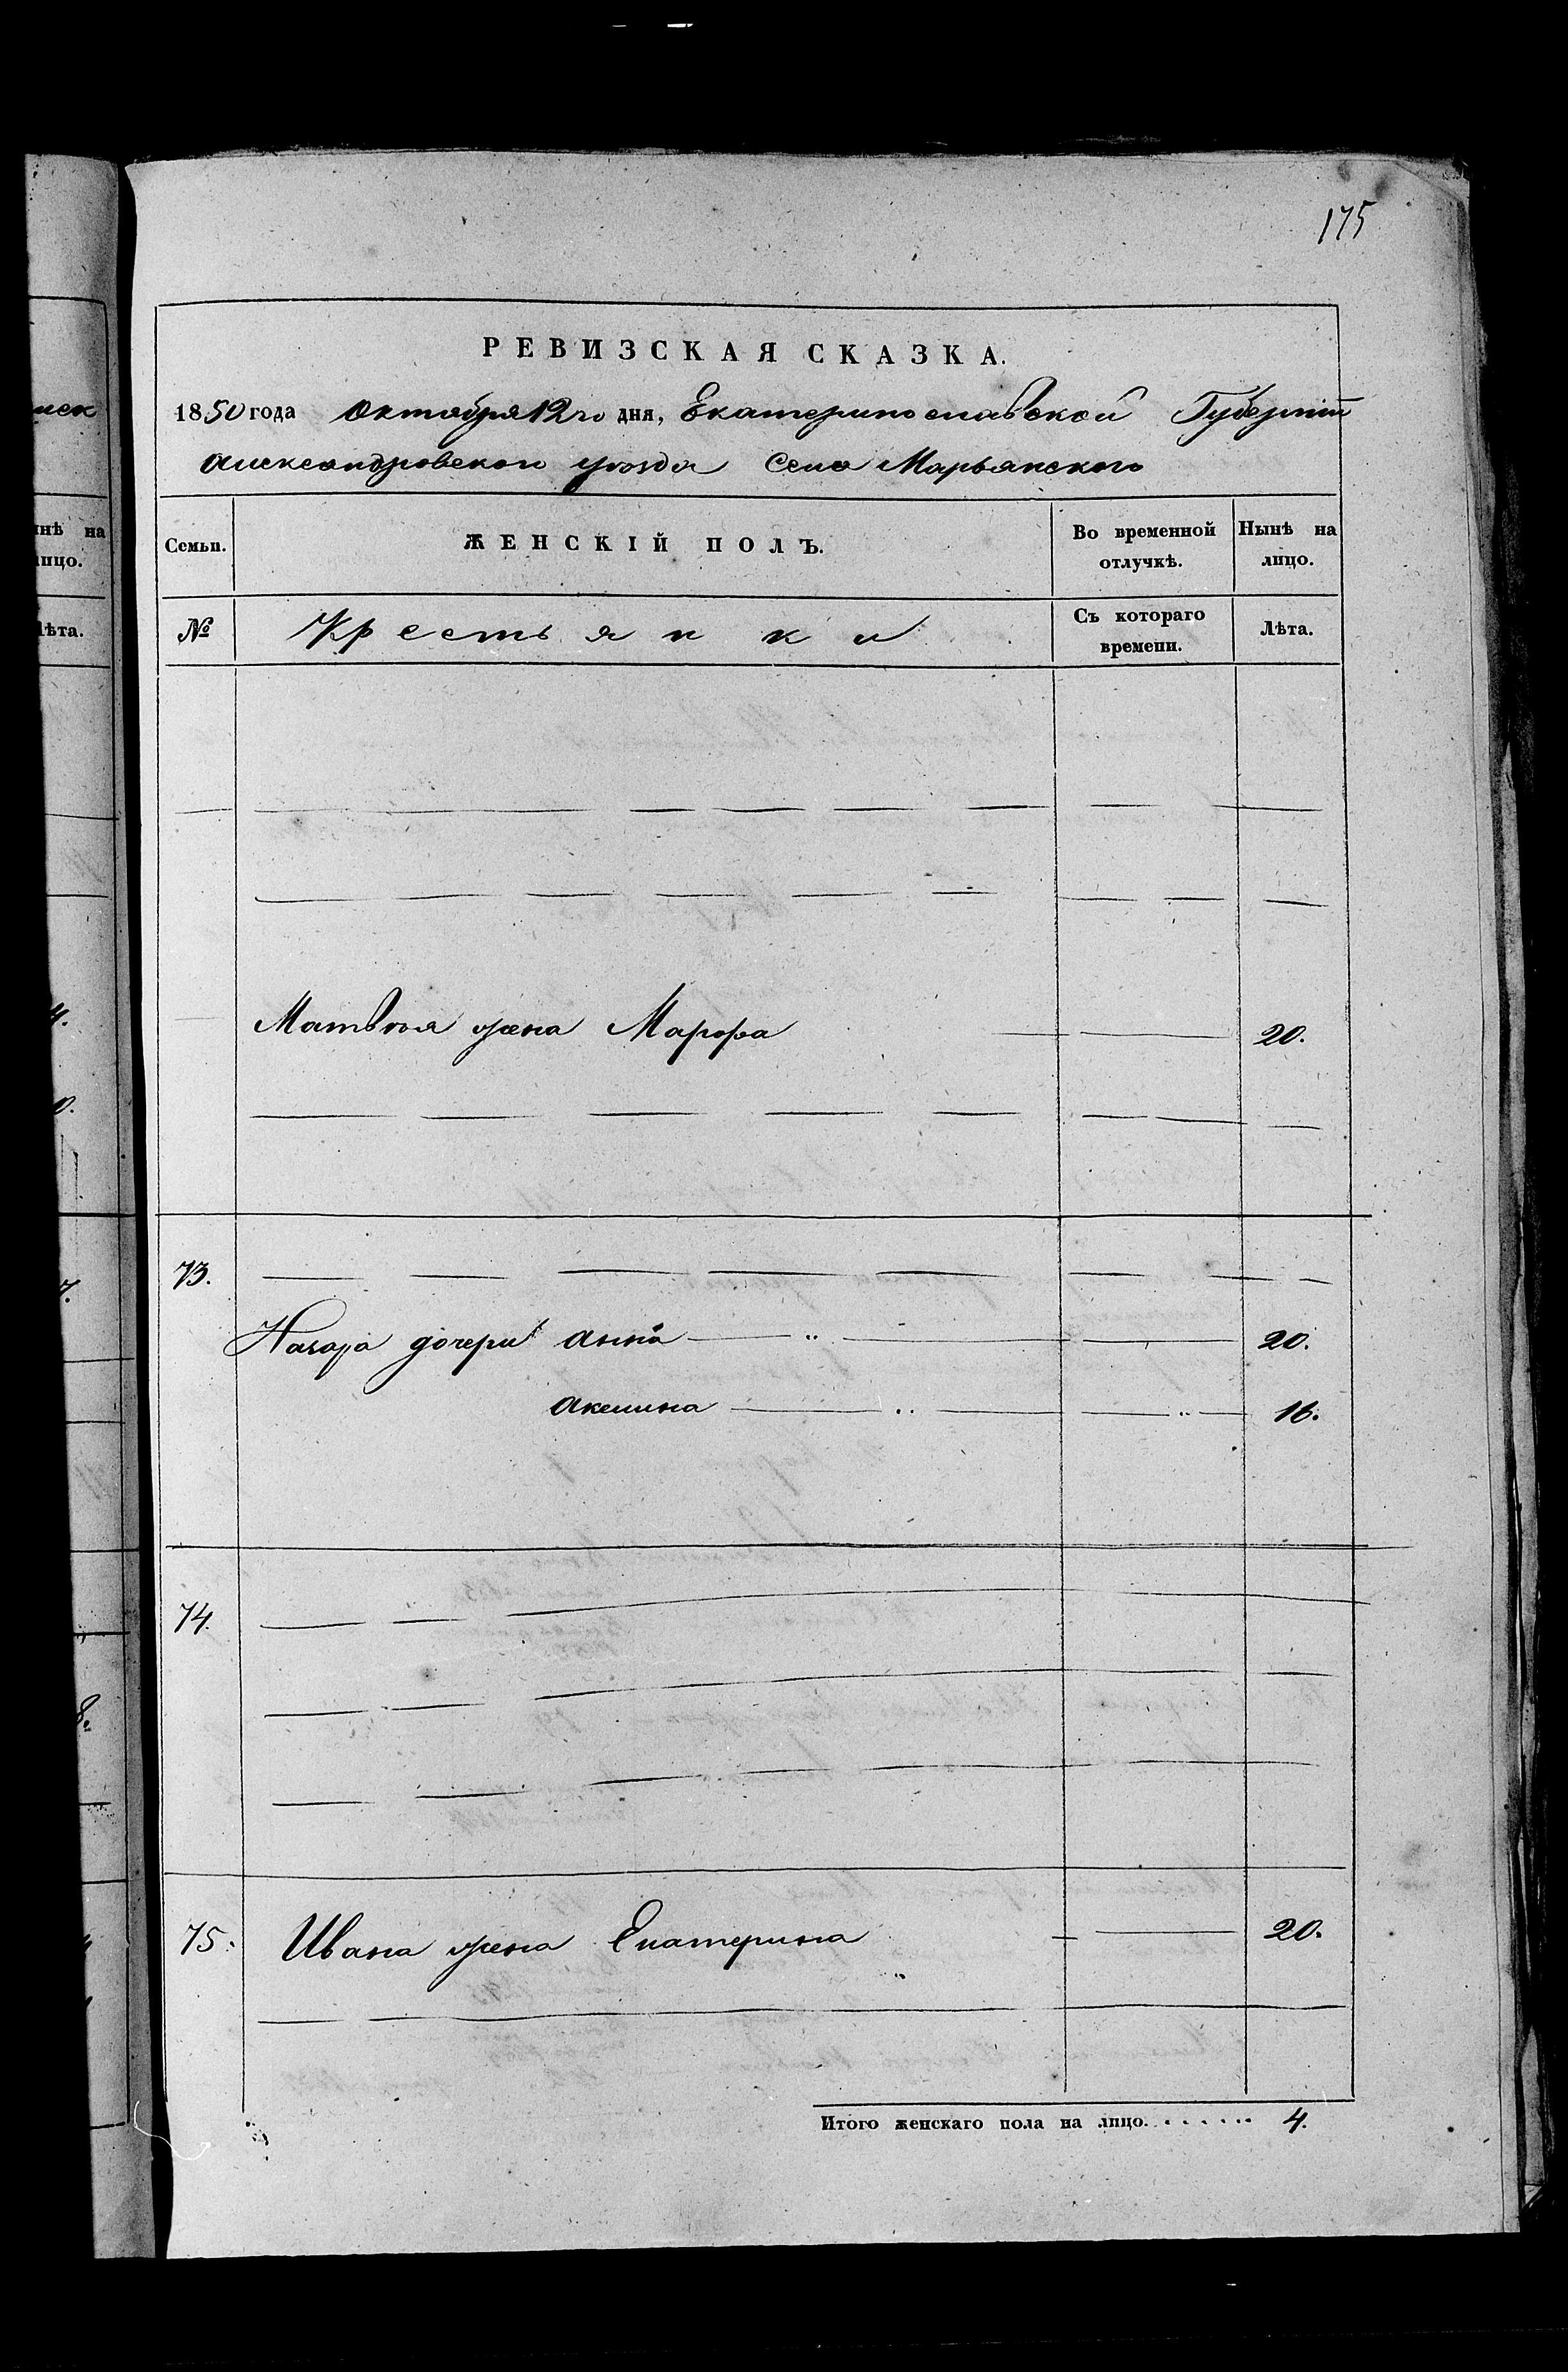 175
РЕВИЗСКАЯ СКАЗКА.
1850 года Октября 12го дня, Екатеринославской Губерніи
Александровского уѣзда Села Марьянского
Семьи. ЖЕНСКІЙ ПОЛЪ. Во временной отлучкѣ. Нынѣ на лицо.
№ Крестьянки Съ котораго времени. Лѣта.
Матвѣя жена Марфа 20.
73.
Назара дочери Анна 20.
Аксинья 16.
74.
75. Ивана жена Екатерина 20.
Итого женскаго пола на лицо. 4.